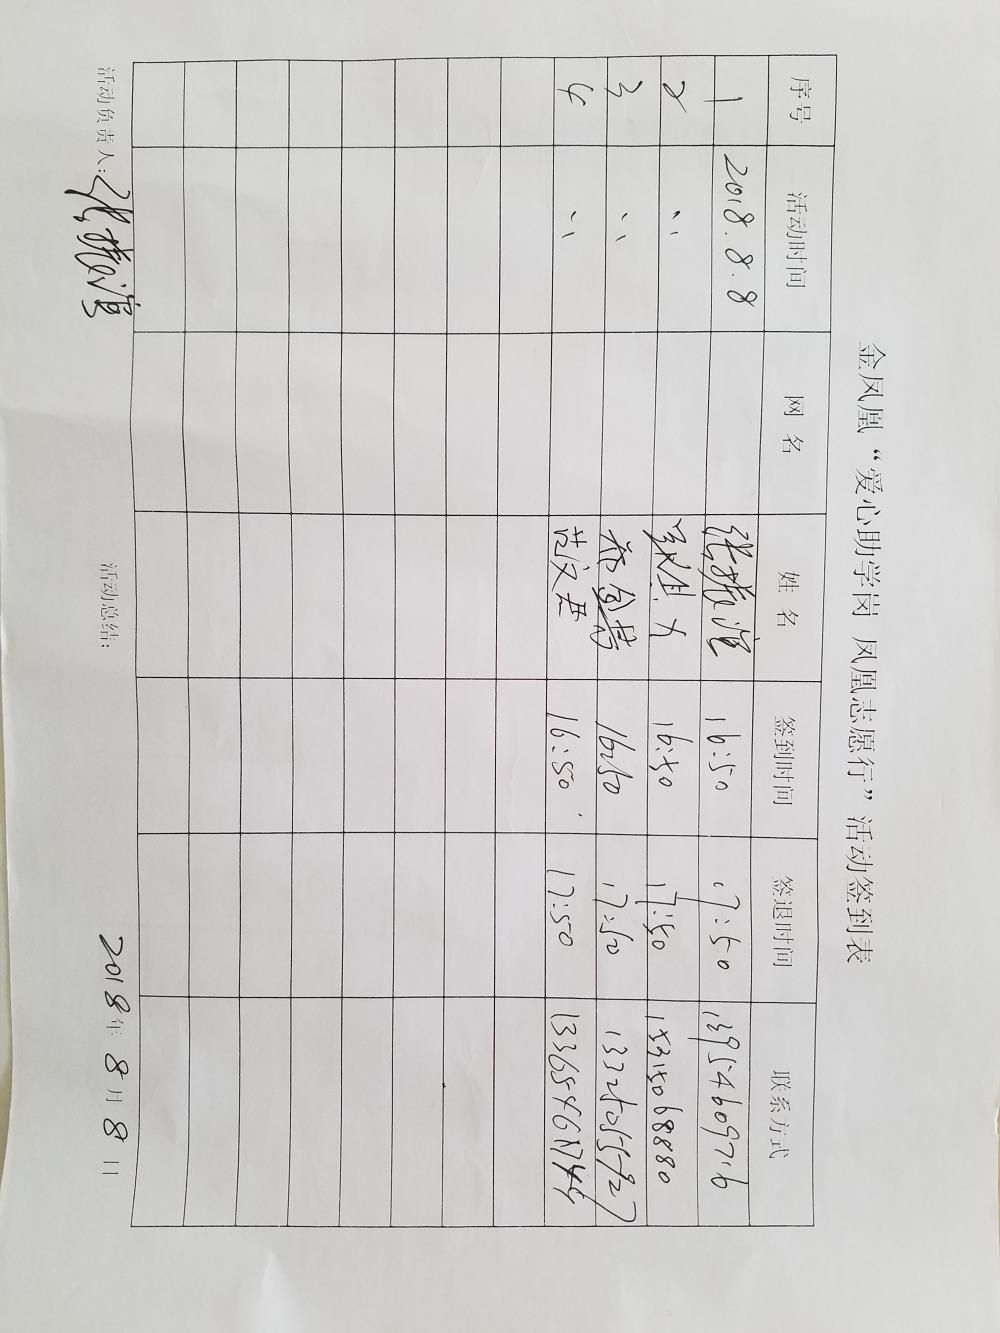 金凤凰“爱心助学岗 凤凰志愿行”活动签到表
序号 活动时间 网 名 姓 名 签到时间 签退时间 联系方式
1 2018.8.8 张 16:50 17:50 13954609716
2 〃 16:50 17:50 15315068880
3 〃 16:50 17:50
4 〃 范文君 16:50 17:50
活动负责人:张 活动总结: 2018年 8月 8日